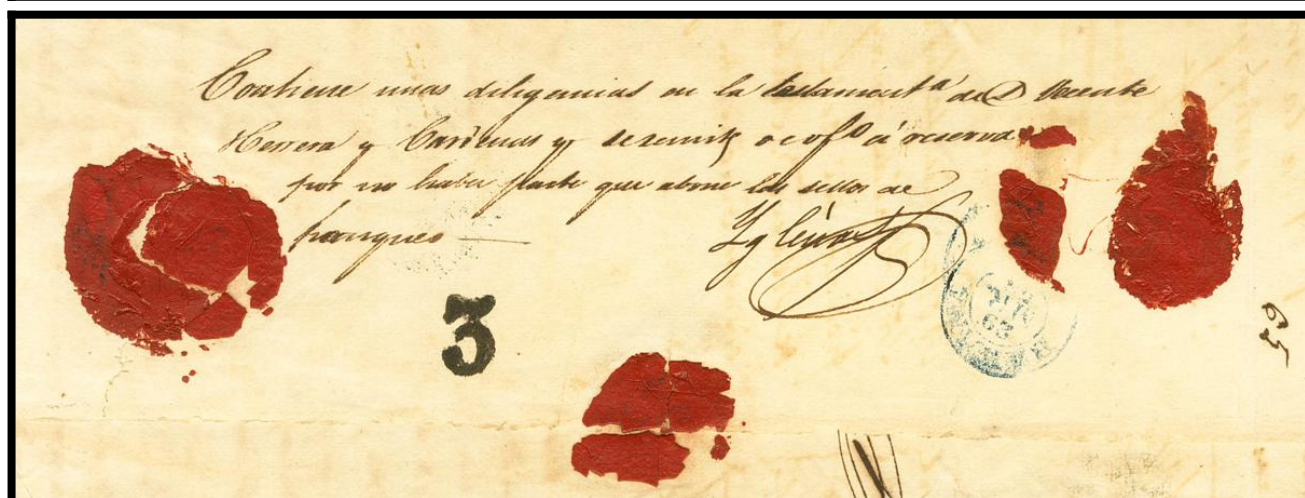 Contiene unas diligencias en la testament.ª de D. Vicente
Herrera y y se remite de of.º á reserva
por no haber parte que abone los sellos de
franqueo
Yglesias
3
63
59